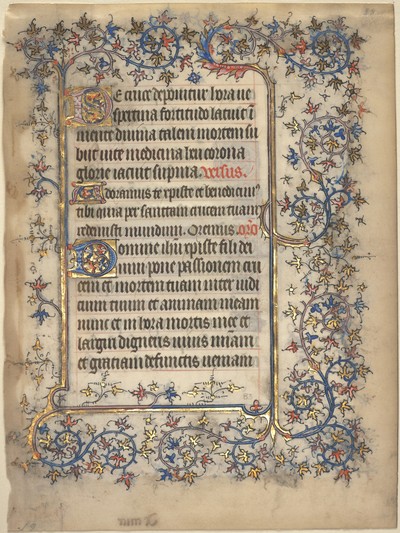 De cruce deponitur hora ve
spertina fortitudo latuit ī
mente divina talem mortem su
biit vite medicina heu corona
glorie iacuit supina Versus.
Adoramus te xpiste et benedicim⁹
tibi quia per sanctam crucem tuam
redemisti mundum. Oremus. Oro
Domine ihū xpiste fili dei
vivi pone passionem cru
cem et mortem tuam inter iudi
cium tuum et animam meam
nunc et in hora mortis mee et
largiri digneris vivis mīam
et gratiam defunctis veniam